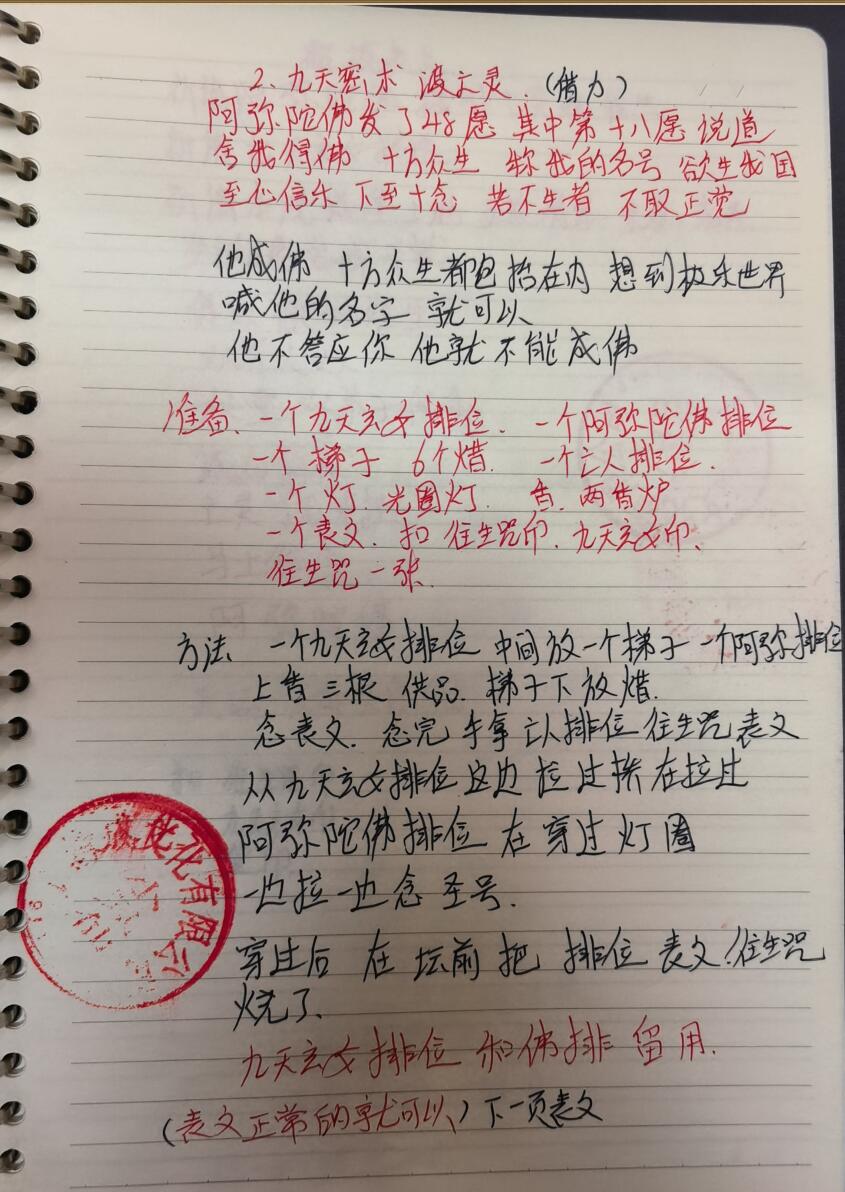 2、九天密术 渡亡灵.（借力）
阿弥陀佛发了48愿 其中第十八愿 说道
舍我得佛 十方众生 称我的名号 欲生我国
至心信乐 下至十念 若不生者 不取正觉
他成佛 十方众生都包括在内 想到极乐世界
喊他的名字 就可以
他不答应你 他就不能成佛
准备、一个九天玄女排位. 一个阿弥陀佛排位
一个梯子 6个蜡. 一个亡人排位.
一个灯.光圈灯. 香.两香炉
一个表文. 扣 往生咒印.九天玄女印、
往生咒一张.
方法、一个九天玄女排位 中间放一个梯子 一个阿弥排位
上香三根 供品. 梯子下放蜡.
念表文. 念完 手拿亡人排位 往生咒 表文
从九天玄女排位这边 拉过 在拉过
阿弥陀佛排位 在穿过灯圈
一边拉一边念圣号.
穿过后 在坛前把 排位 表文.往生咒
烧了.
九天玄女排位 和佛排 留用.
（表文正常的就可以）下一页表文
化有限公